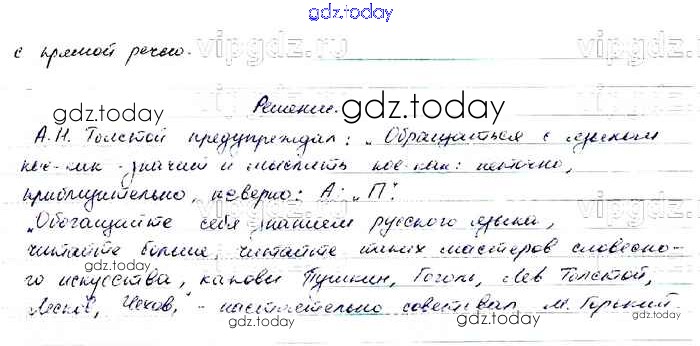 gdz.today
с прямой речью.
vipgdz.ru
Решение.
gdz.today
А.Н. Толстой предупреждал: „Обращаться с языком
кое-как - значит и мыслить кое-как: неточно,
gdz.today
приблизительно, неверно: А: „П".
gdz.today
vipgdz.ru
„Обогащайте себя знанием русского языка,
читайте больше, читайте таких мастеров словесно-
го искусства, каковы Пушкин, Гоголь, Лев Толстой,
gdz.today
Лесков, Чехов," - настоятельно советовал М. Горький.
gdz.today
gdz.today